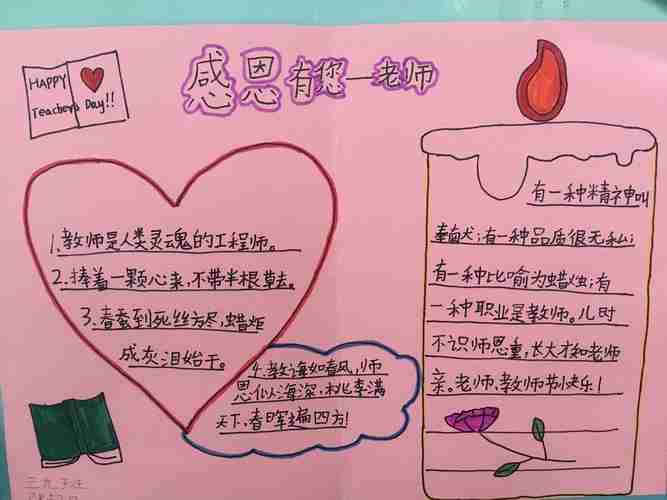 感恩有您一老师
HAPPY
Teachers Day!!
1.教师是人类灵魂的工程师。
2.捧着一颗心来,不带半根草去。
3.春蚕到死丝方尽,蜡炬
成灰泪始干。
4.教诲如春风,师
恩似海深,桃李满
天下,春晖遍四方!
有一种精神叫
奉献;有一种品质很无私;
有一种比喻为蜡烛;有
一种职业是教师。儿时
不识师恩重,长大才知老师
亲。老师,教师节快乐!